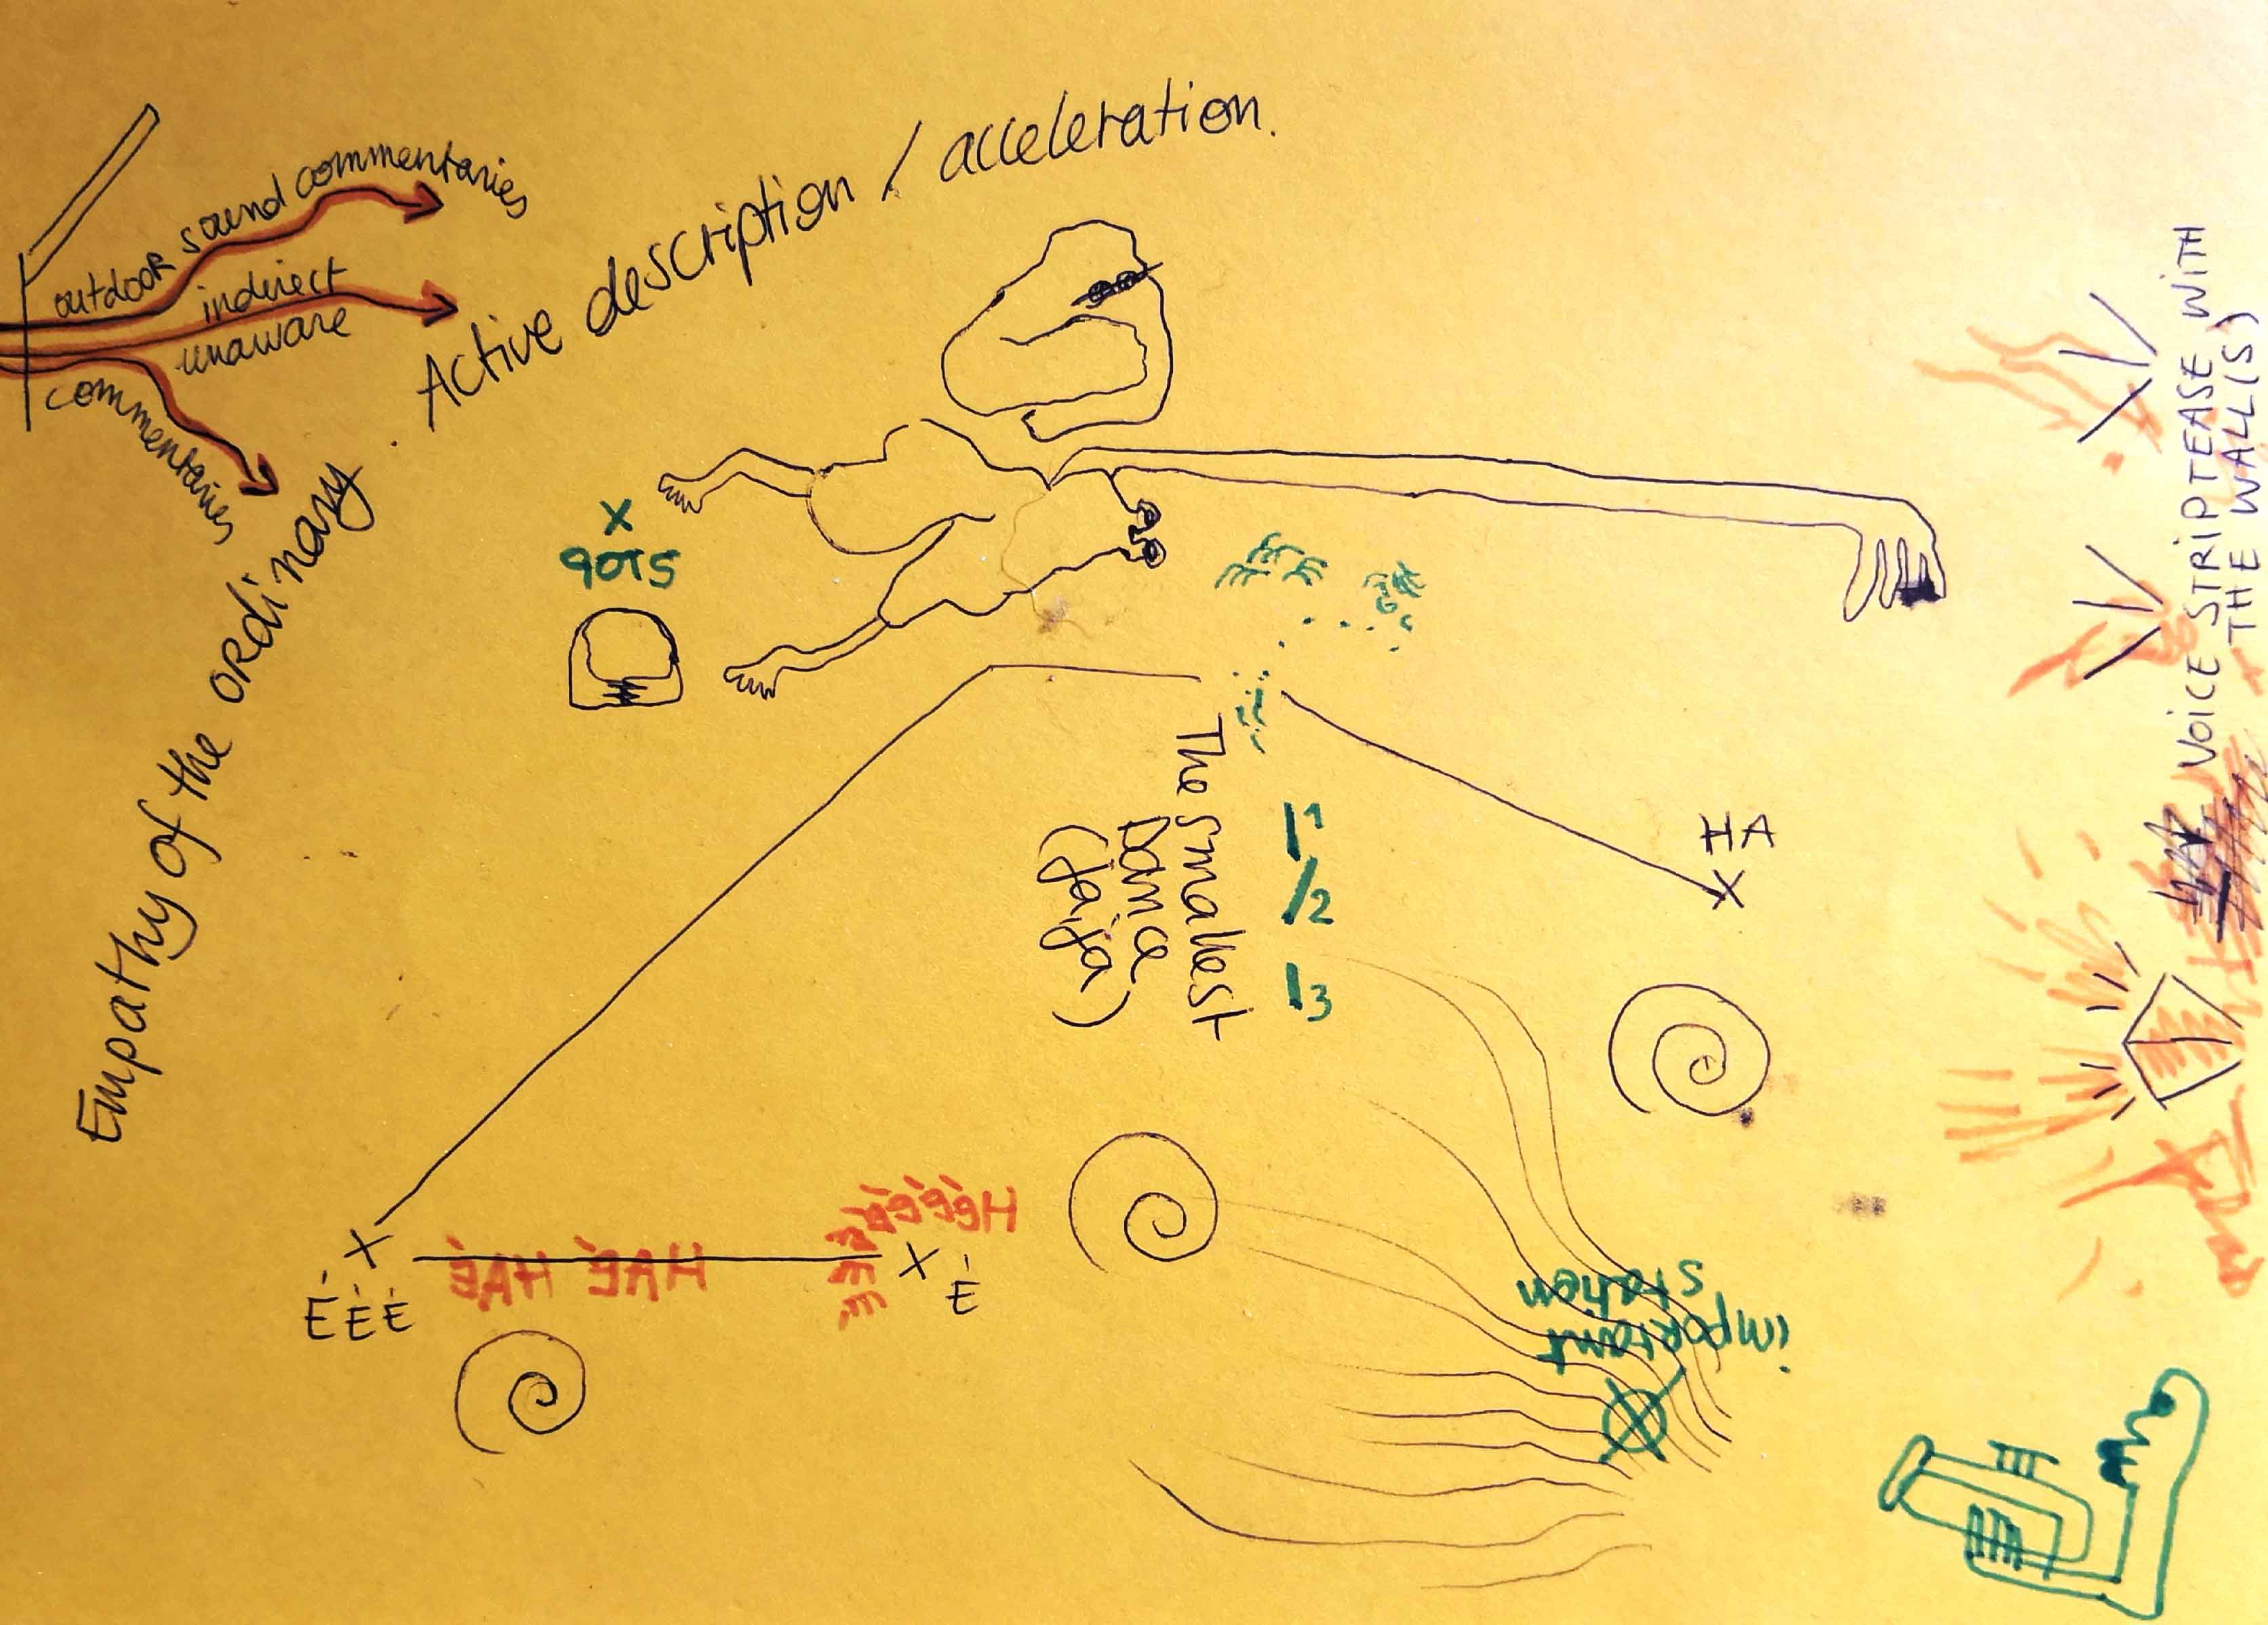 outdoor sound commentaries
indirect
unaware
commentaries
Empathy of the ordinary. Active description / acceleration.
STOP
The smallest
Dance
(jaja)
1
2
3
HA
VOICE STRIPTEASE WITH
THE WALL(S)
ÉÉÉ
HAÈ HAÈ
É
important
station